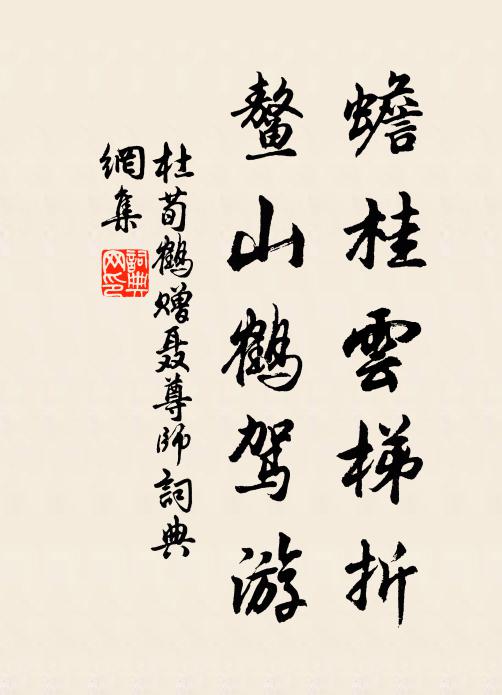 蟾桂雲梯折
鰲山鶴駕游
杜荀鶴贈聂尊師詞典
網集
詞典
网印